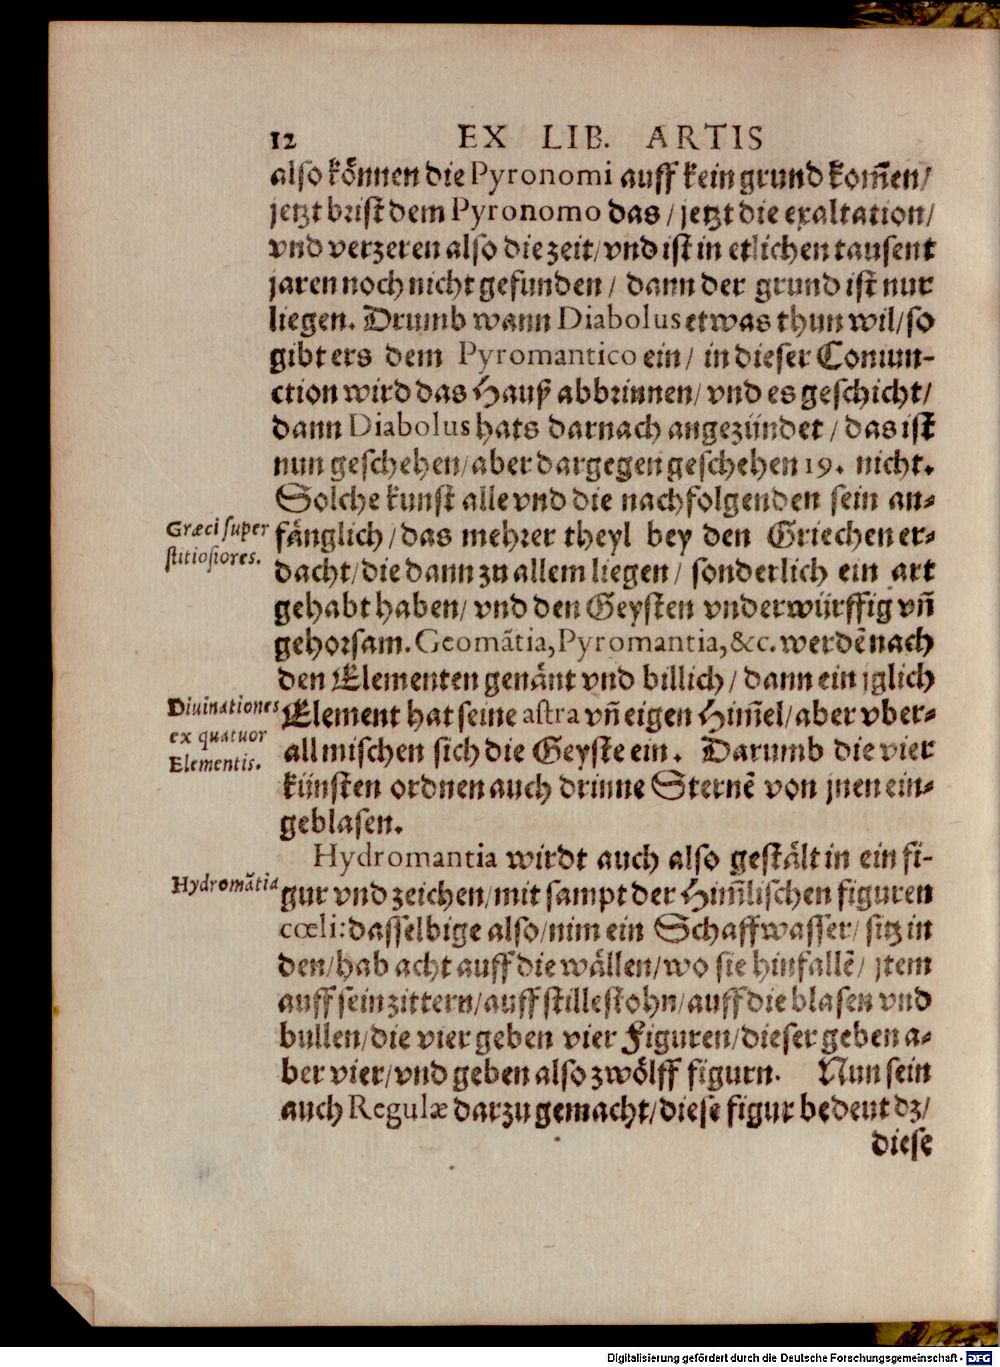 12 EX LIB. ARTIS
also können die Pyronomi auff kein grund kom̃en/
jetzt brist dem Pyronomo das / jetzt die exaltation/
vnd verzeren also die zeit/ vnd ist in etlichen tausent
jaren noch nicht gefunden / dann der grund ist nur
liegen. Drumb wann Diabolus etwas thun wil/ so
gibt ers dem Pyromantico ein/ in dieser Coniun-
ction wird das Hauß abbrinnen/ vnd es geschicht/
dann Diabolus hats darnach angezündet / das ist
nun geschehen/ aber dargegen geschehen 19. nicht.
Solche kunst alle vnd die nachfolgenden sein an-
Græci super
stitiosiores.
fänglich / das mehrer theyl bey den Griechen er-
dacht/ die dann zu allem liegen / sonderlich ein art
gehabt haben/ vnd den Geysten vnderwürffig vn̄
gehorsam. Geomãtia, Pyromantia, &c. werdẽ nach
den Elementen genänt vnd billich / dann ein jglich
Diuinationes
ex quatuor
Elementis.
Element hat seine astra vn̄ eigen Him̃el/ aber vber-
all mischen sich die Geyste ein. Darumb die vier
künsten ordnen auch drinne Sternẽ von jnen ein-
geblasen.
Hydromantia wirdt auch also gestält in ein fi-
Hydromãtia
gur vnd zeichen/ mit sampt der Him̃lischen figuren
cœli: dasselbige also/ nim ein Schaff wasser/ sitz in
den/ hab acht auff die wällen/ wo sie hinfallẽ/ jtem
auff sein zittern/ auff stillestohn/ auff die blasen vnd
bullen/ die vier geben vier Figuren/ dieser geben a-
ber vier/ vnd geben also zwölff figurn. Nun sein
auch Regulæ darzu gemacht/ diese figur bedeut dz/
diese
Digitalisierung gefördert durch die Deutsche Forschungsgemeinschaft - DFG